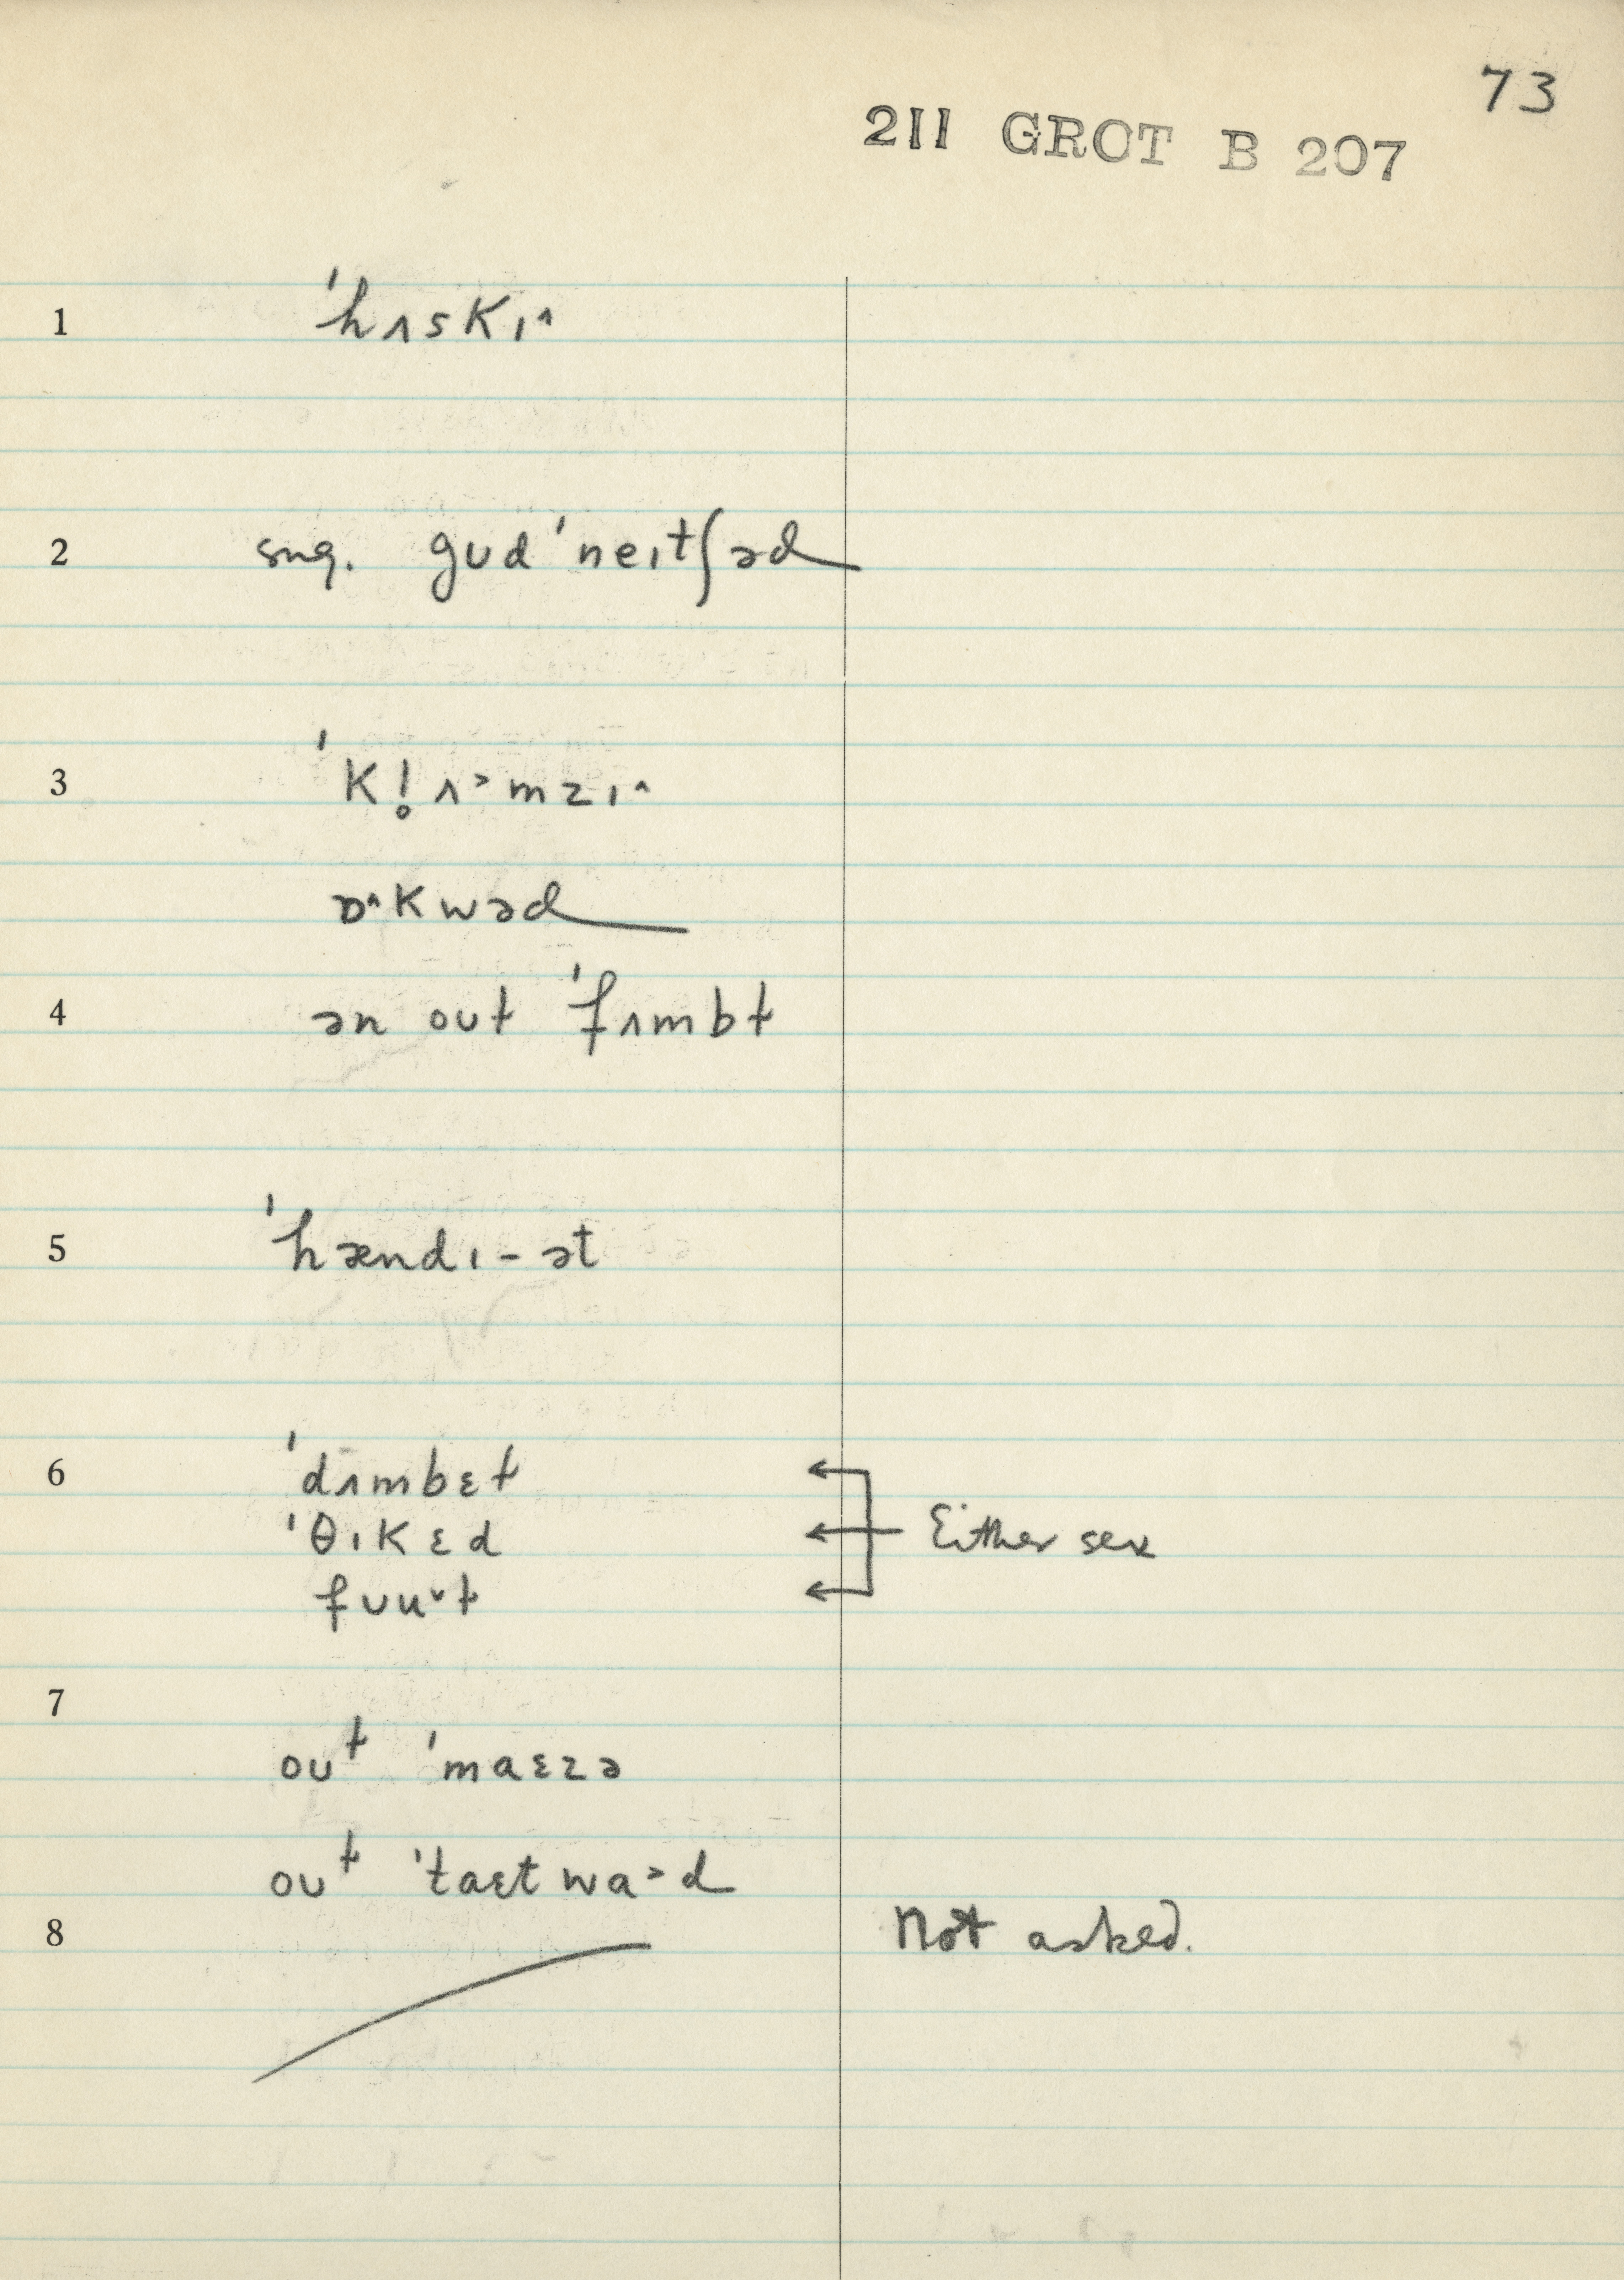 73
211 GROT B 207
1 ˈhʌskɪ˄
2 sug. gʊdˈneɪtʃəd
3 ˈkl̥ʌ˃mzɪ˄
ɒ˄kwəd
4 ən oʊɫ ˈfʌmbɫ
5 ˈhændɪ-ət
6 ˈdʌmbɛɫ
ˈθɪkɛd
fʊu˅ɫ
Either sex
7
oʊɫ ˈmaɛzə
oʊɫ ˈtaɛtwa˃d
8 Not asked.